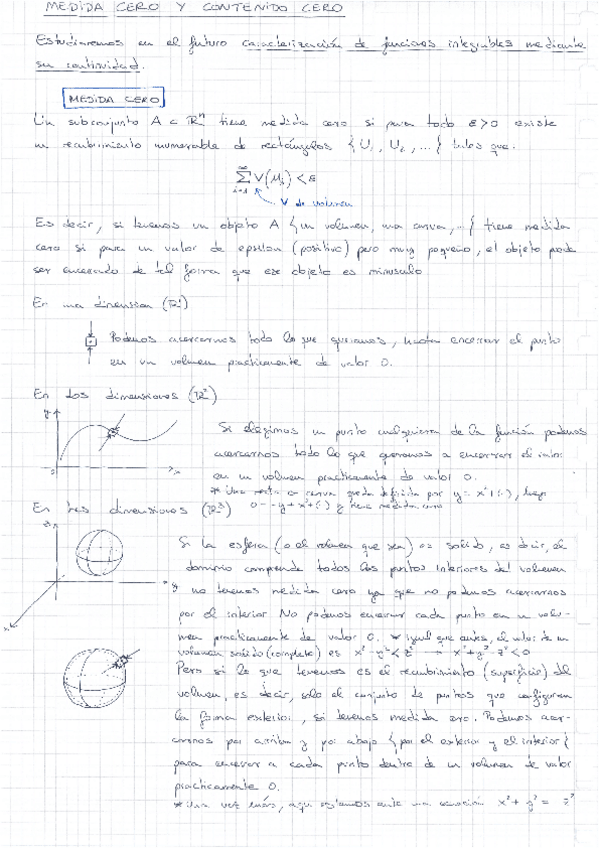 MEDIDA CERO Y CONTENIDO CERO
Estudiaremos en el futuro caracterización de funciones integrables mediante
su continuidad.
MEDIDA CERO
Un subconjunto A ⊂ ℝⁿ tiene medida cero si para todo ε>0 existe
un recubrimiento numerable de rectángulos {U₁, U₂, ...} tales que:
∑ V(Uᵢ) < ε
i=1
V de volumen
Es decir, si tenemos un objeto A {un volumen, una curva, ...} tiene medida
cero si para un valor de epsilon (positivo) pero muy pequeño, el objeto puede
ser encerrado de tal forma que ese objeto es minusculo.
En una dimension (ℝ¹)
Podemos acercarnos todo lo que queramos, hasta encerrar el punto
en un volumen practicamente de valor 0.
En dos dimensiones (ℝ²)
y
x
Si elegimos un punto cualquiera de la función podemos
acercarnos todo lo que queramos a encerrar el
en un volumen practicamente de valor 0.
* Una recta o curva queda definida por y = luego
y tiene medida cero
En tres dimensiones (ℝ³)
z
y
x
Si la esfera (o el volumen que sea) es solido, es decir, el
dominio comprende todos los puntos interiores del volumen
no tenemos medida cero ya que no podemos acercarnos
por el interior. No podemos encerrar cada punto en un volu-
men practicamente de valor 0. * igual que antes, el valor de un
volumen solido (completo) es
Pero si lo que tenemos es el recubrimiento (superficie) del
volumen, es decir, solo el conjunto de puntos que configuran
la forma exterior, si tenemos medida cero. Podemos acer-
carnos por arriba y por abajo {por el exterior y el interior}
para encerrar a cada punto dentro de un volumen de valor
practicamente 0.
* Una vez más, aqui estamos ante una ecuación x² + y² = z²